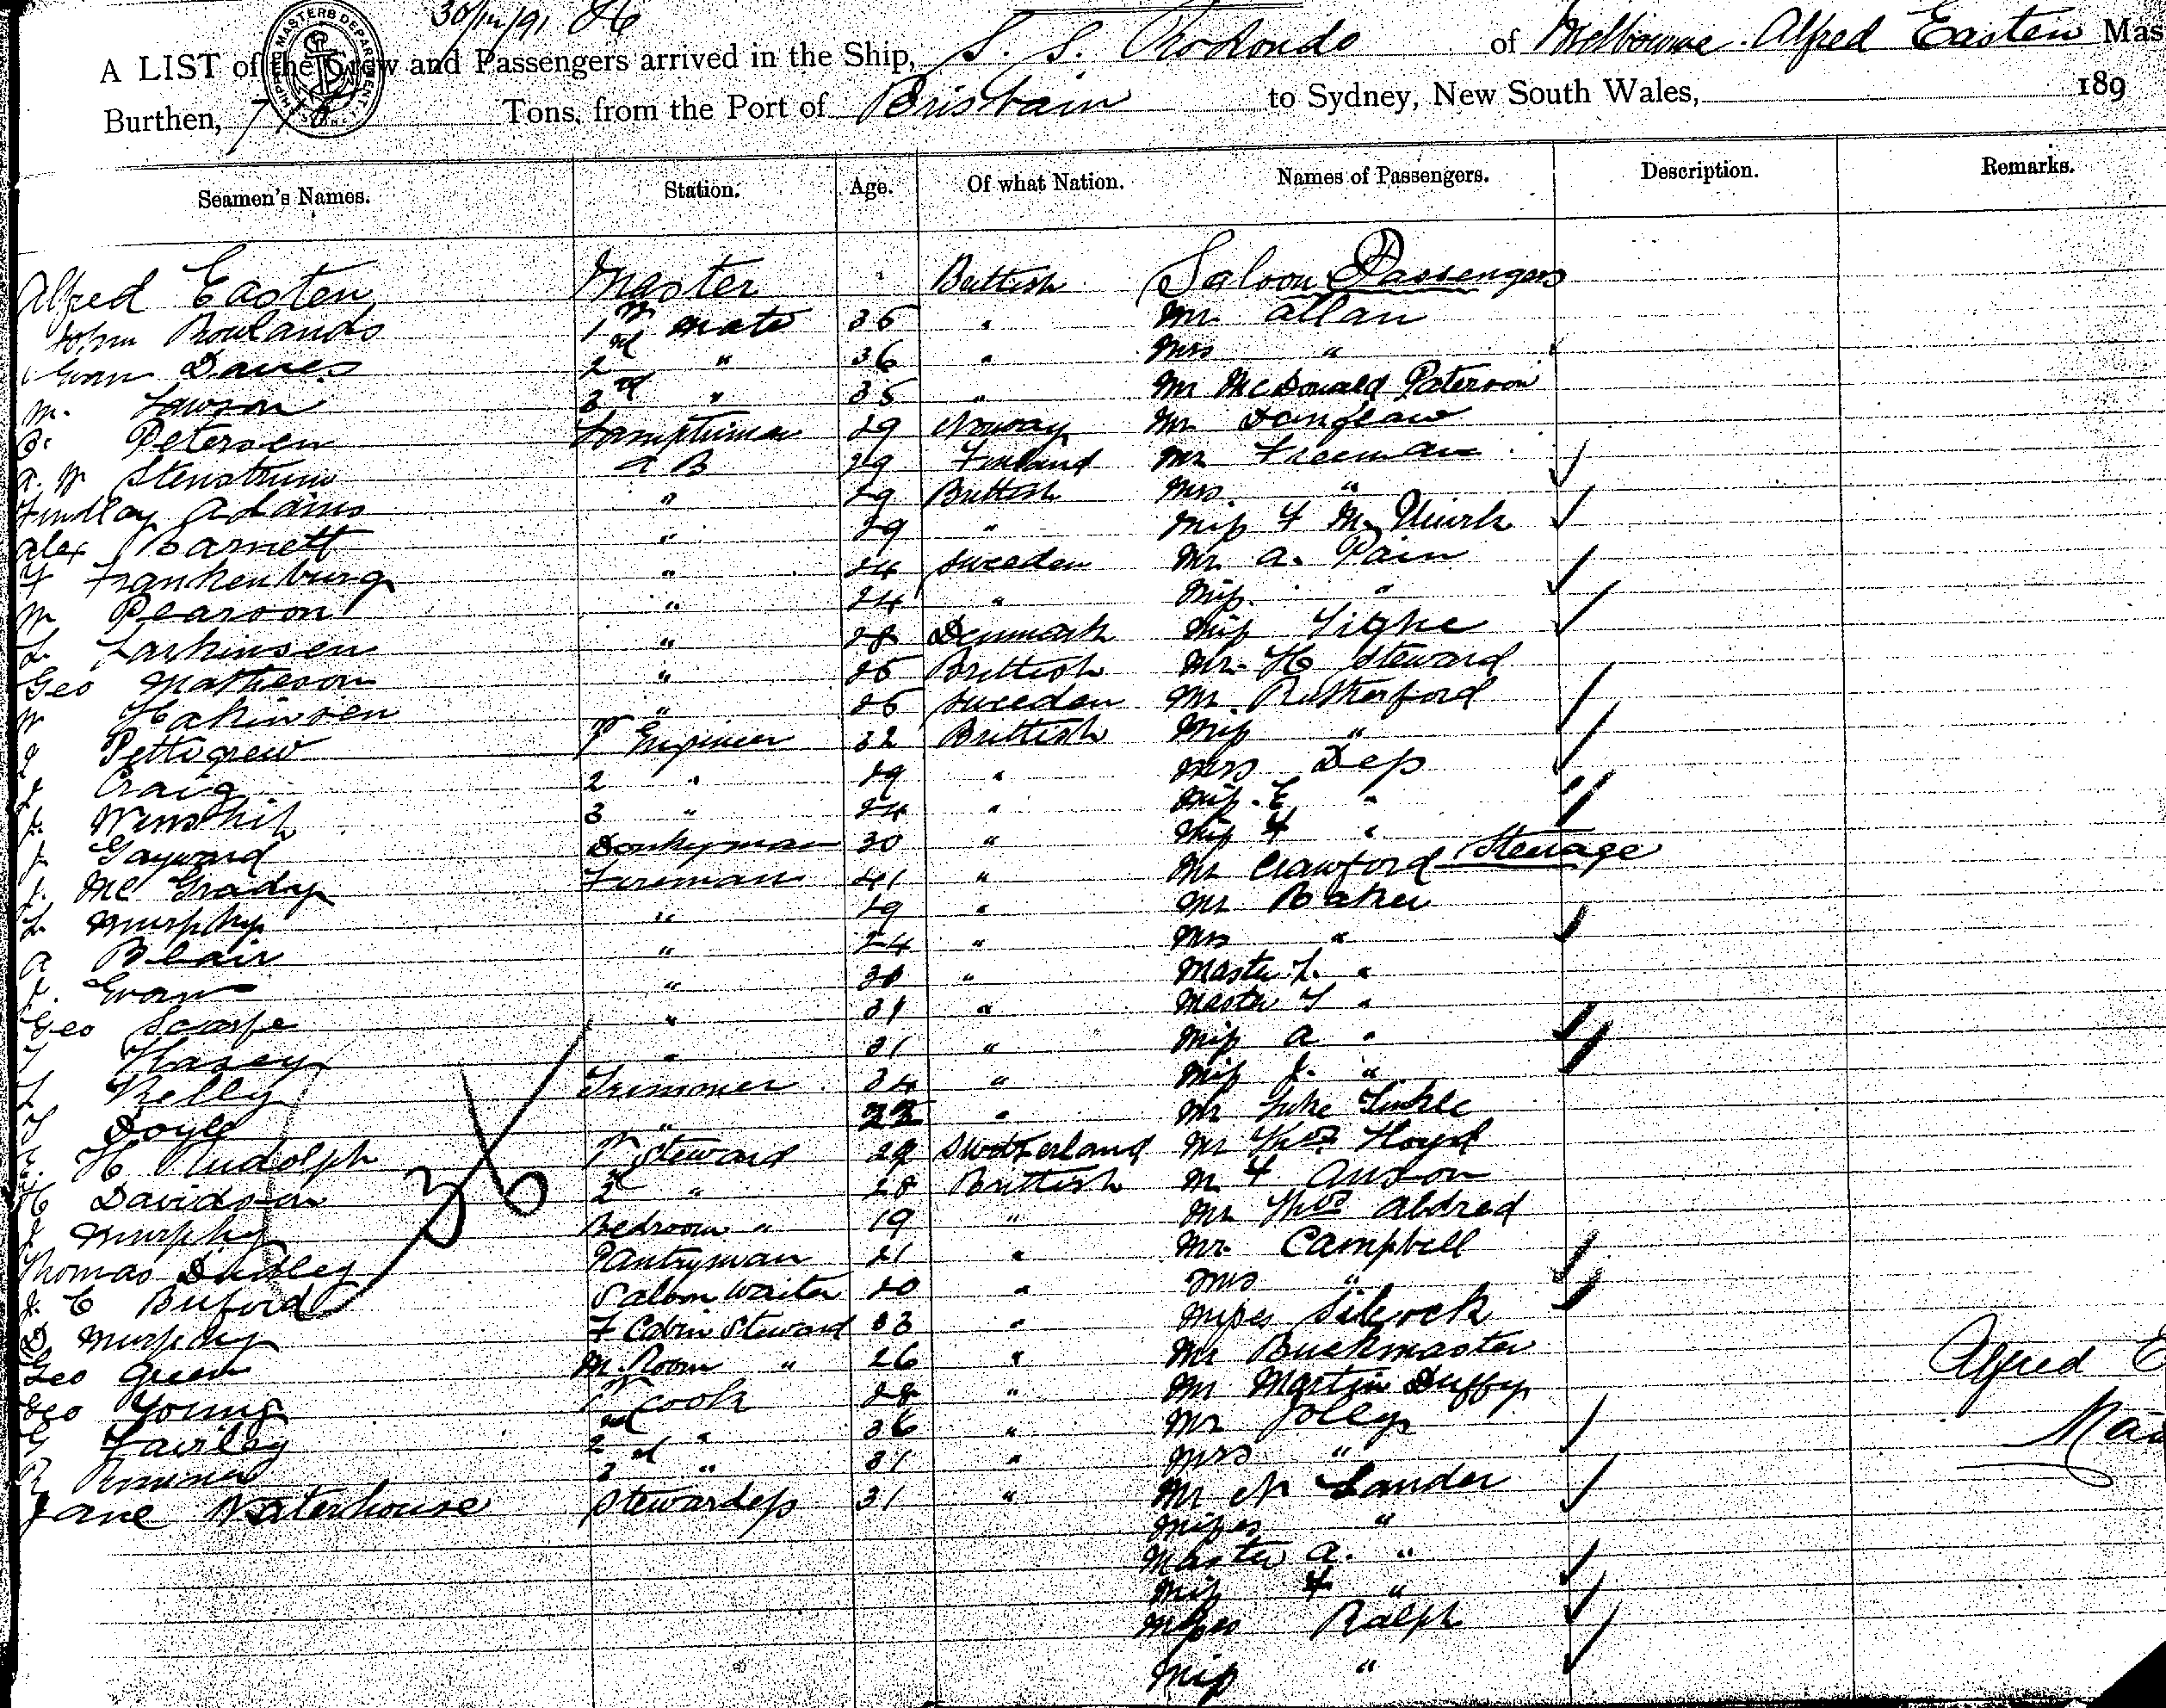 30/12/91 86
A LIST of the Crew and Passengers arrived in the Ship, S. S. Rodondo of Melbourne. Alfred Easten Mas
Burthen, 718 Tons, from the Port of Brisbain to Sydney, New South Wales, 189
SHIPPING MASTERS DEPARTMENT
Seamen's Names. Station. Age. Of what Nation. Names of Passengers. Description. Remarks.
Alfred Easten Master Brittish Saloon Passengers
John Rowlands 1st Mate 35 " Mr. Allan
Evan Davies 2nd " 36 " Mrs "
M. Lawson 3rd " 35 " Mr McDonald Paterson
Petersen Lamptrimer 29 Norway Mr
A. W Stenstrum A B 29 Finland Mr Freeman
Findlay Adams " 29 Brittish Mrs. "
Alex Barnett " 29 " Miss F M.
F Frankenburg " 24 Sweeden Mr A. Pain
M Pearson " 24 " Miss "
L. Larkinsen " 28 Denmark Miss Tighe
Geo Matheson " 25 Brittish Mr. H Steward
W Hakinsen " 25 Sweeden Mr. Rutherford
J Pettigrew 1st Engineer 32 Brittish Miss "
J Craig 2 " 29 " Mrs Dess
J. Winship 3 " 24 " Miss. E "
J. Gayward Donkyman 30 " Miss F "
J. Mc Grady Fireman 41 " Mr Crawford Steerage
L. Murphy " 29 " Mr Baker
A Blair " 24 " Mrs "
J. Evans " 30 " Master L. "
Geo Scarfe " 31 " Master T "
T Hasey " 31 " Miss A "
L Kelly Trimmer 34 " Miss J. "
T Doyle " 22 " Mr Luke
E. H Rudolph 1st Steward 29 Switzerland Mr Thos Floyd
H Davidson 2d " 28 Brittish Mr F Anson
J Murphy Bedroom " 19 " Mr Thos Aldred
Thomas Dudley Pantryman 21 " Mr. Campbell
J. C Buford Saloon Waiter 20 " Mrs "
D Murphy F Cabin Steward 33 " Misses Silcock
Geo Green M. Room " 26 " Mr Buckmaster
Geo Young 1st Cook 28 " Mr Martin Duffy
G Fairley 2nd " 36 " Mr Jolley
R 3rd " 31 " Mrs "
Jane Waterhouse Stewardess 31 " Mr N Lander
Misses "
Master A. "
Miss F. "
Misses Ralph
Miss "
36
Alfred E
Mas